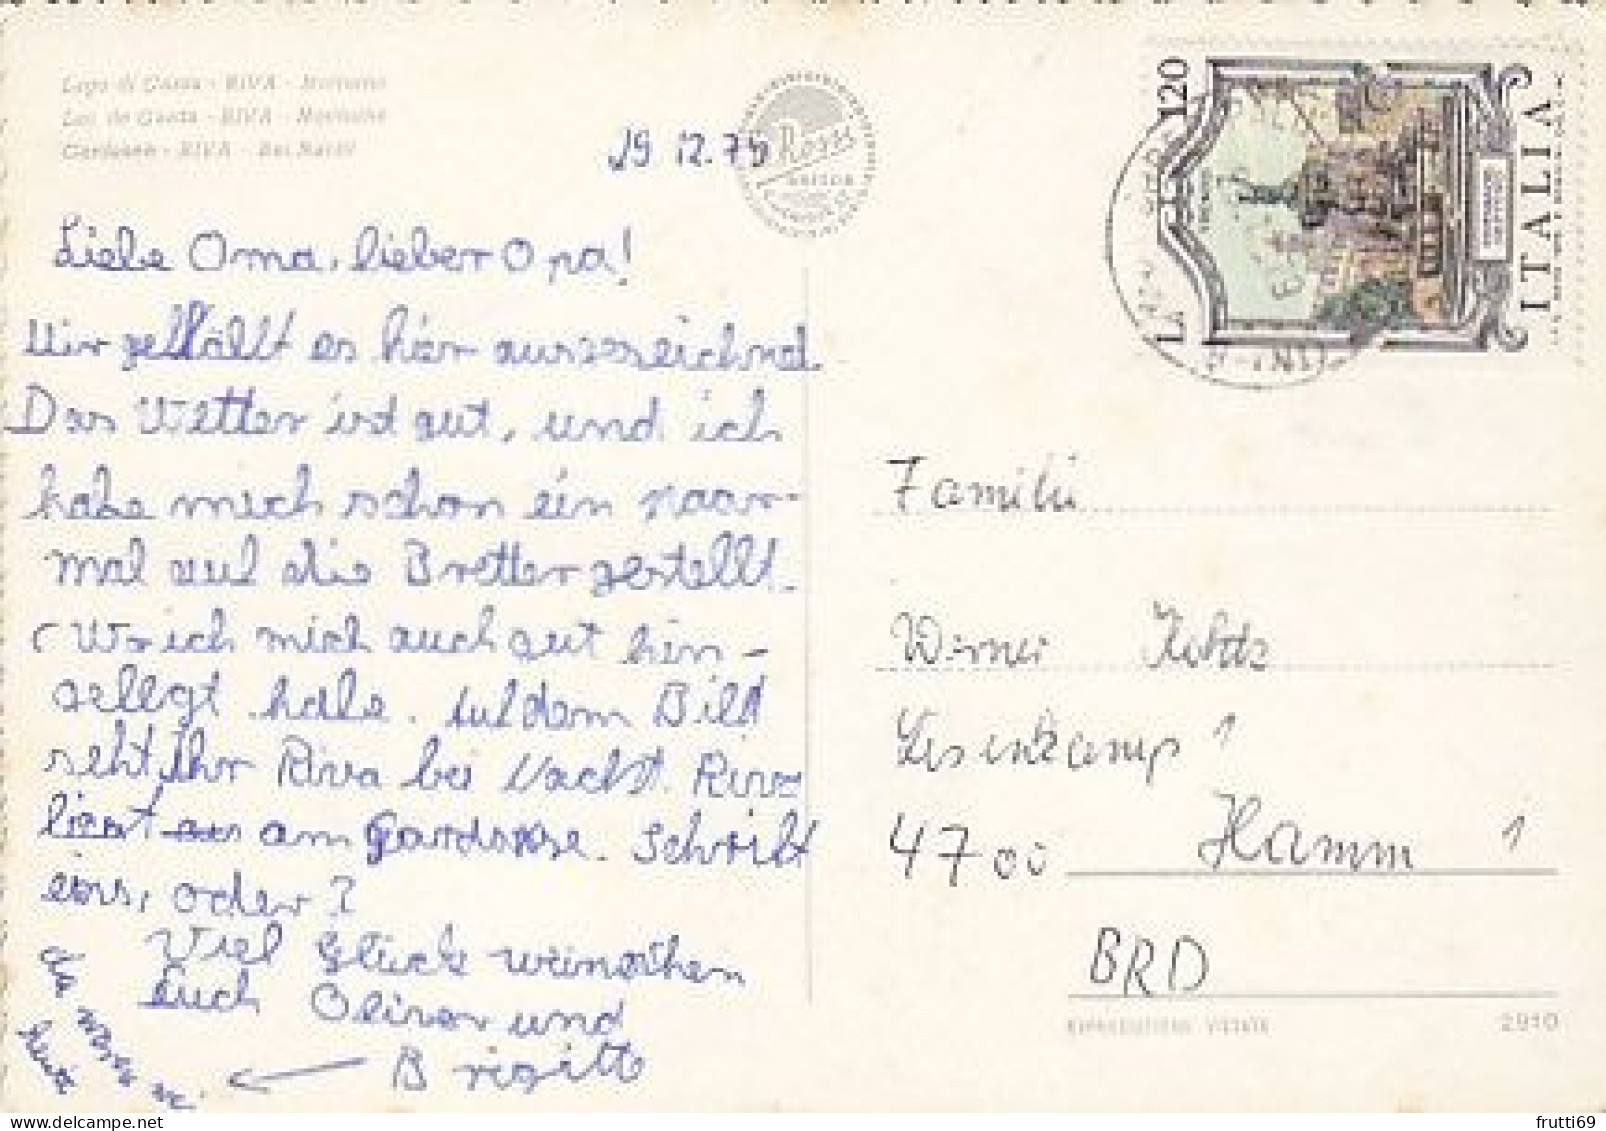 Lago di Garda - RIVA - Notturno
Lac de Garda - RIVA - Nocturne
Gardasee - RIVA - Bei Nacht
19 12.79
Liebe Oma, lieber Opa!
Mir gefällt es hier ausgezeichnet.
Das Wetter ist gut, und ich
habe mich schon ein paar-
mal auf die Bretter gestellt.
(Wo ich mich auch gut hin-
gelegt habe. Auf dem Bild
seht Ihr Riva bei Nacht. Riva
liegt am Gardasee. Schreibt
eins, oder?
Viel Glück wünschen
Euch Oliver und
Brigitte
heute
120
ITALIA
Familie
Werner
4700 Hamm 1
BRD
RIPRODUZIONE VIETATA 2910
frutti69